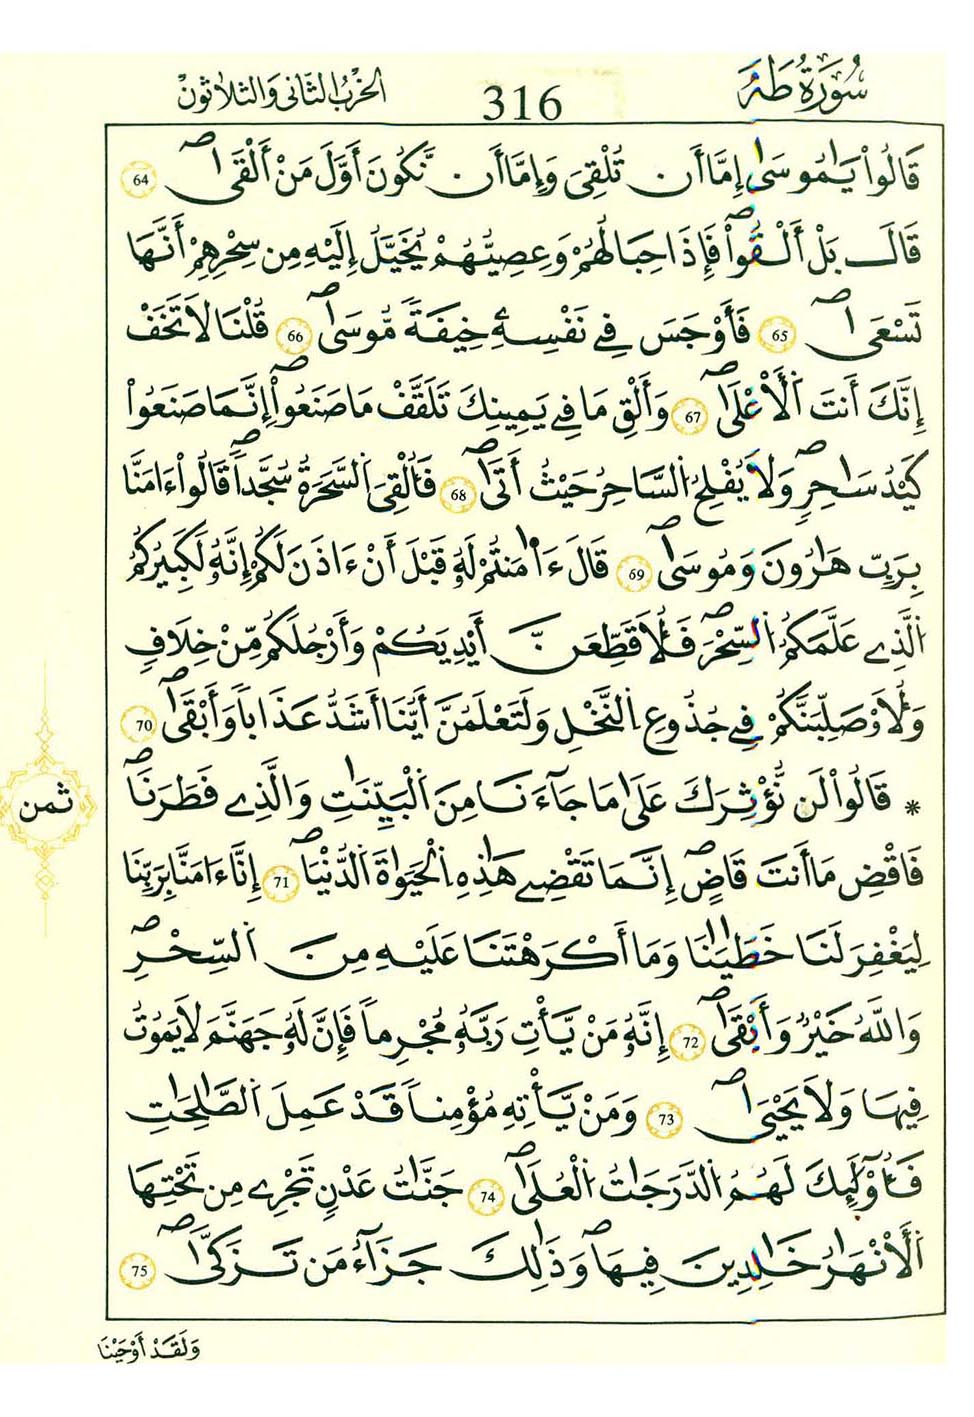 سُورَةُ طَهَ 316 الحِزْبُ الثَّانِي وَالثَّلَاثُونَ
قَالُواْ يَٰمُوسَىٰٓ إِمَّآ أَن تُلْقِيَ وَإِمَّآ أَن نَّكُونَ أَوَّلَ مَنْ أَلْقَىٰ 64
قَالَ بَلْ أَلْقُواْ فَإِذَا حِبَالُهُمْ وَعِصِيُّهُمْ يُخَيَّلُ إِلَيْهِ مِن سِحْرِهِمُۥٓ أَنَّهَا
تَسْعَىٰ 65 فَأَوْجَسَ فِے نَفْسِهِۦ خِيفَةً مُّوسَىٰ 66 قُلْنَا لَا تَخَفْ
إِنَّكَ أَنتَ اَلْأَعْلَىٰ 67 وَأَلْقِ مَا فِے يَمِينِكَ تَلَقَّفْ مَا صَنَعُواْ إِنَّمَا صَنَعُواْ
كَيْدُ سَٰحِرٍ وَلَا يُفْلِحُ اُلسَّاحِرُ حَيْثُ أَتَىٰ 68 فَأُلْقِيَ اَلسَّحَرَةُ سُجَّداً قَالُوٓاْ ءَامَنَّا
بِرَبِّ هَٰرُونَ وَمُوسَىٰ 69 قَالَ ءَا۬مَنتُمْ لَهُۥ قَبْلَ أَنْ ءَاذَنَ لَكُمُۥٓ إِنَّهُۥ لَكَبِيرُكُمُ
اُلذِے عَلَّمَكُمُ اُلسِّحْرَ فَلَأُقَطِّعَنَّ أَيْدِيَكُمْ وَأَرْجُلَكُم مِّنْ خِلَٰفٍ
وَلَأُصَلِّبَنَّكُمْ فِے جُذُوعِ اِلنَّخْلِ وَلَتَعْلَمُنَّ أَيُّنَآ أَشَدُّ عَذَاباً وَأَبْقَىٰ 70
* قَالُواْ لَن نُّؤْثِرَكَ عَلَىٰ مَا جَآءَنَا مِنَ اَلْبَيِّنَٰتِ وَالَّذِے فَطَرَنَا
ثمن
فَاقْضِ مَآ أَنتَ قَاضٍ إِنَّمَا تَقْضِے هَٰذِهِ اِلْحَيَوٰةَ اَلدُّنْيَآ 71 إِنَّآ ءَامَنَّا بِرَبِّنَا
لِيَغْفِرَ لَنَا خَطَٰيَٰنَا وَمَآ أَكْرَهْتَنَا عَلَيْهِ مِنَ اَلسِّحْرِ
وَاللَّهُ خَيْرٌ وَأَبْقَىٰ 72 إِنَّهُۥ مَنْ يَّأْتِ رَبَّهُۥ مُجْرِماً فَإِنَّ لَهُۥ جَهَنَّمَ لَا يَمُوتُ
فِيهَا وَلَا يَحْيَىٰ 73 وَمَنْ يَّأْتِهِۦ مُؤْمِناً قَدْ عَمِلَ اَلصَّٰلِحَٰتِ
فَأُوْلَٰٓئِكَ لَهُمُ اُلدَّرَجَٰتُ اُلْعُلَىٰ 74 جَنَّٰتُ عَدْنٍ تَجْرِے مِن تَحْتِهَا
اَلْأَنْهَٰرُ خَٰلِدِينَ فِيهَا وَذَٰلِكَ جَزَآءُ مَن تَزَكَّىٰ 75
وَلَقَدْ أَوْحَيْنَا